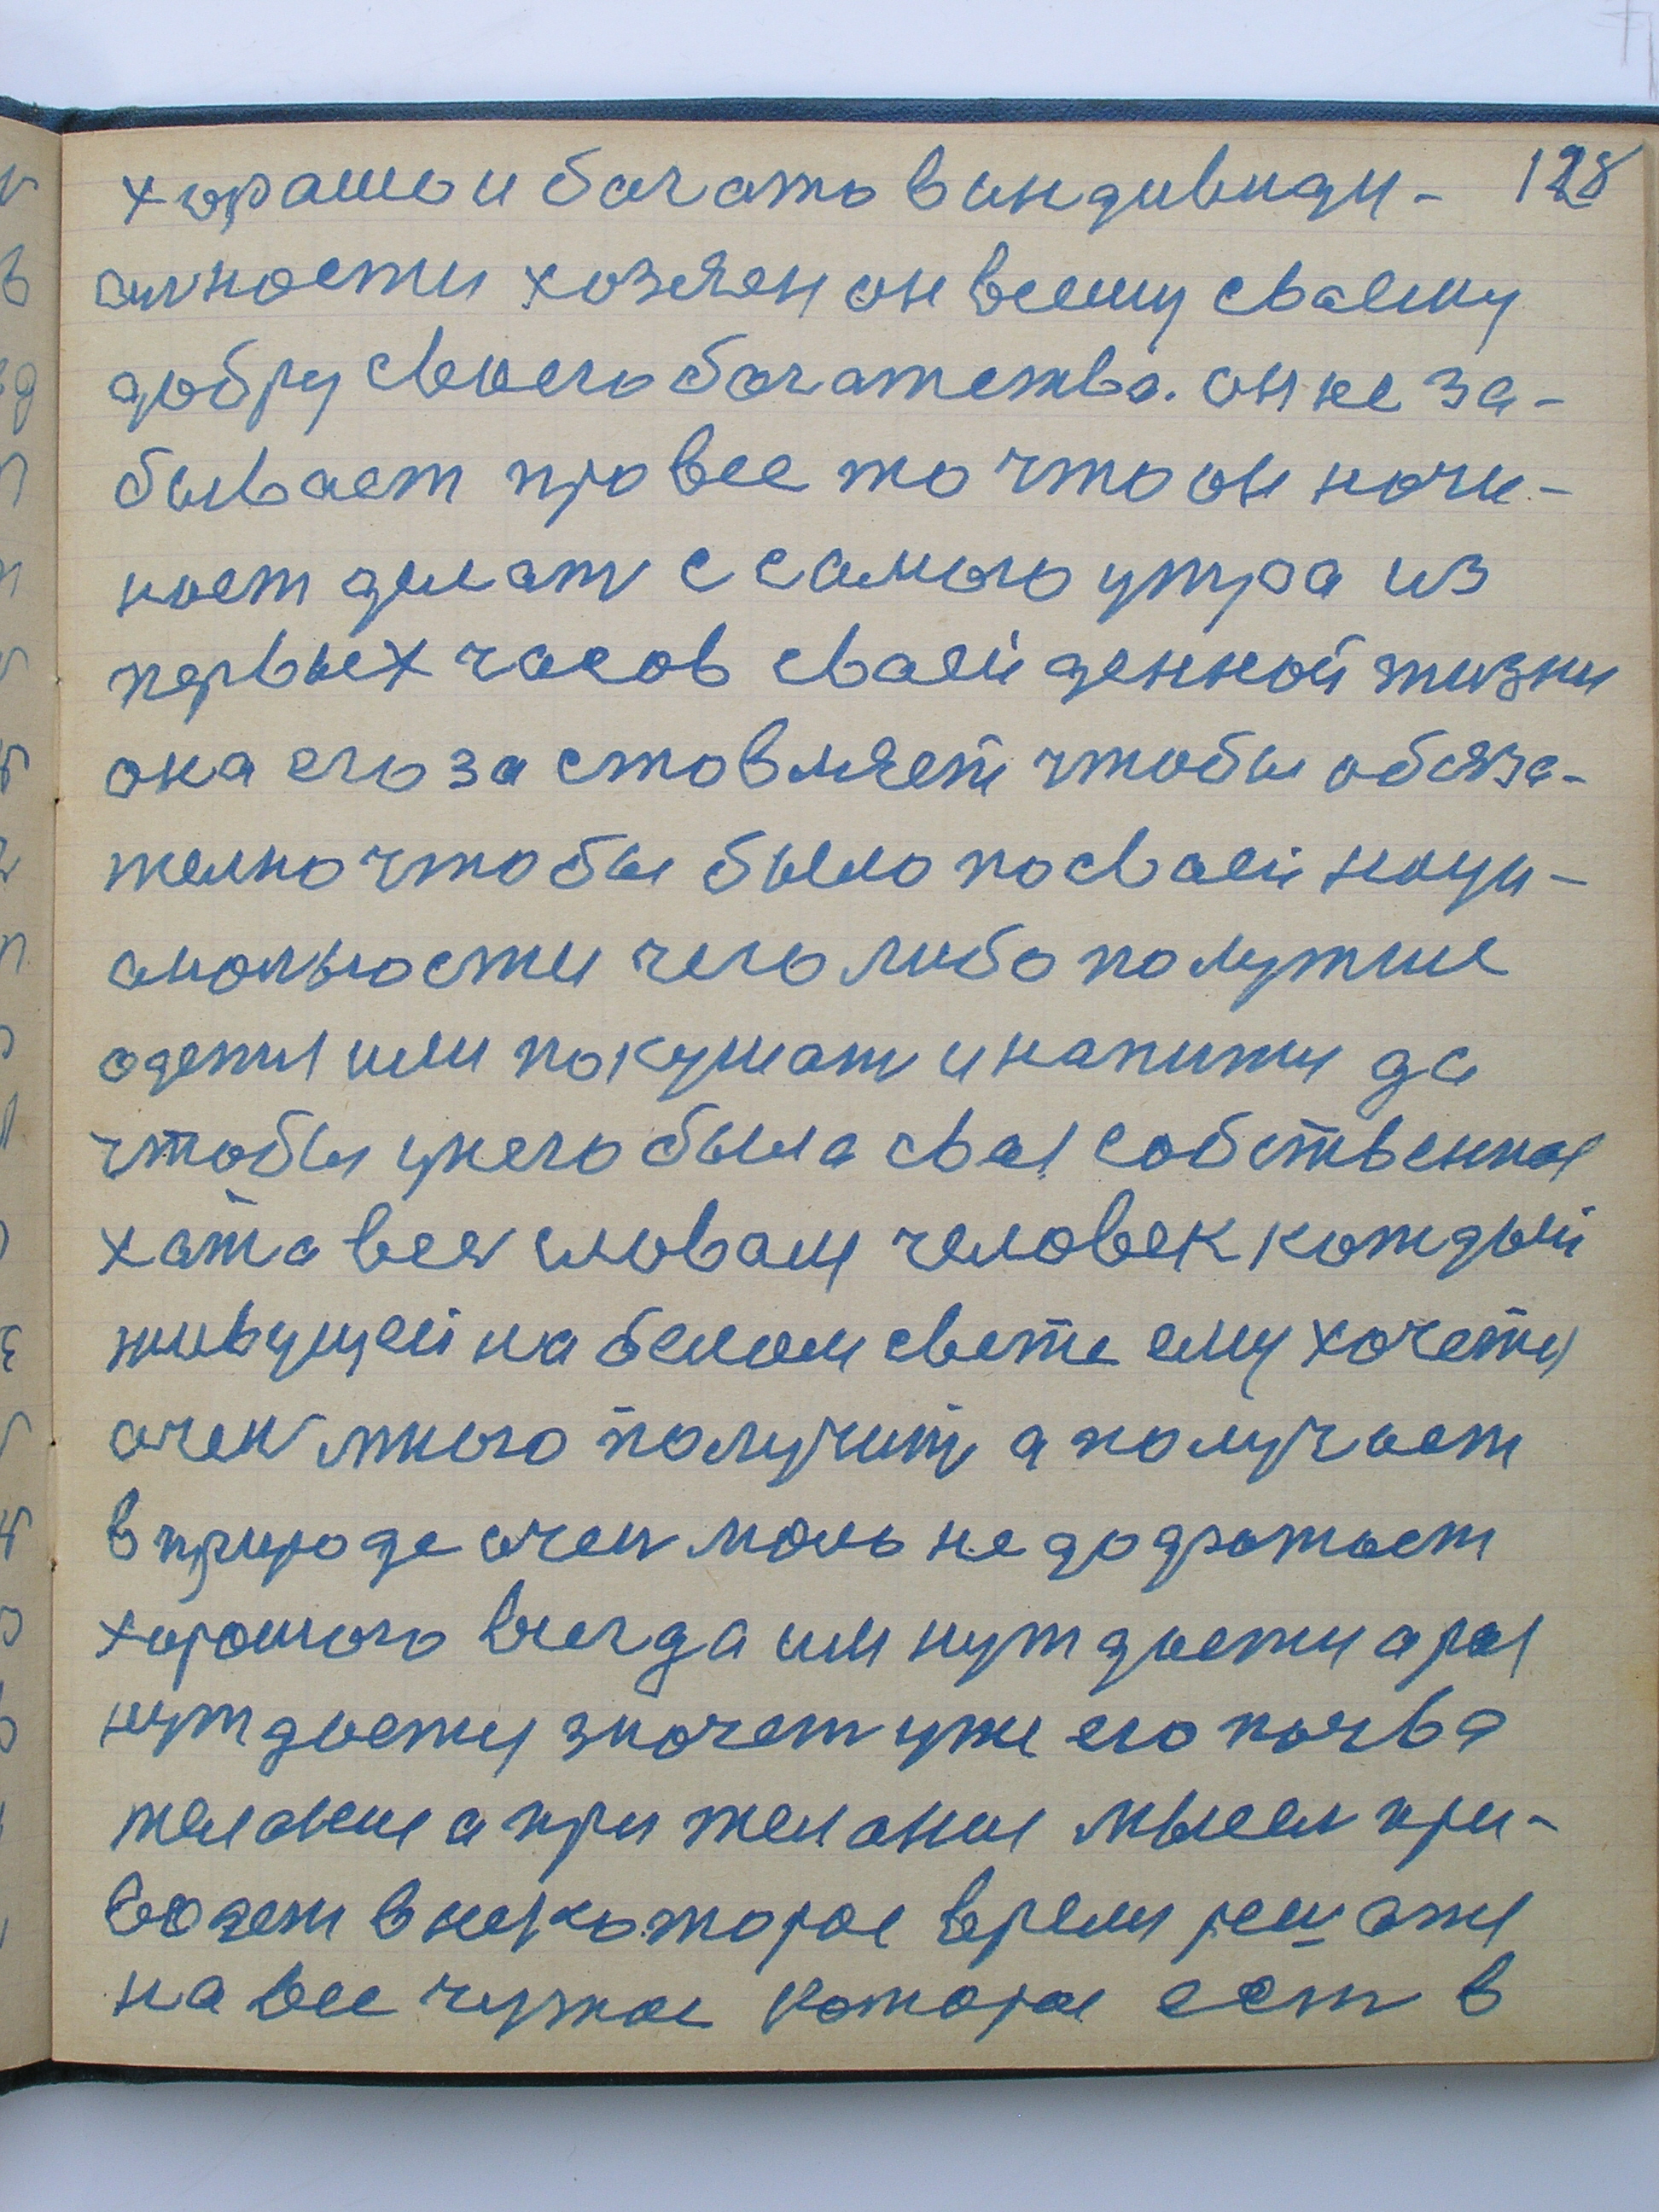 хорашо и богато в индивиди- 128
алности хозяен он всему сваему
добру своего богатства. он не за-
бывает про все то что он начи-
нает делат с самого утра из
первых часов сваей денной жизни
она его заставляет чтобы обяза-
телно чтобы было по сваей наци-
анальности чего либо полутше
одется или покушат и напится да
чтобы у него была свая собственная
хата всем словам человек каждый
живущей на белом свете ему хочется
очен много получит а получает
в природе очен мало не додрожает
хорошого всегда им нуждается а раз
нуждается значет уже его почва
желание а при желание мысел при-
водет в некоторое время решатся
на все чужое которое ест в